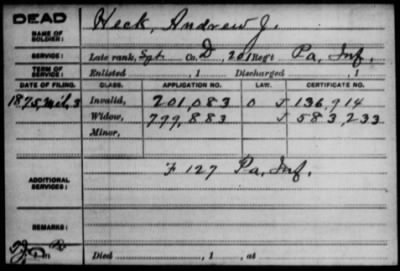 DEAD
NAME OF SOLDIER:
Heck, Andrew J.
SERVICE: Late rank, Sgt. Co. D, 201 Reg't Pa. Inf.
TERM OF SERVICE: Enlisted , 1 Discharged , 1
DATE OF FILING. CLASS. APPLICATION NO. LAW. CERTIFICATE NO.
1875, 3 Invalid, 201,083 O J 136,914
Widow, 799,883 J 583,233
Minor,
ADDITIONAL SERVICES: F 127 Pa. Inf.
REMARKS:
Died , 1 , at